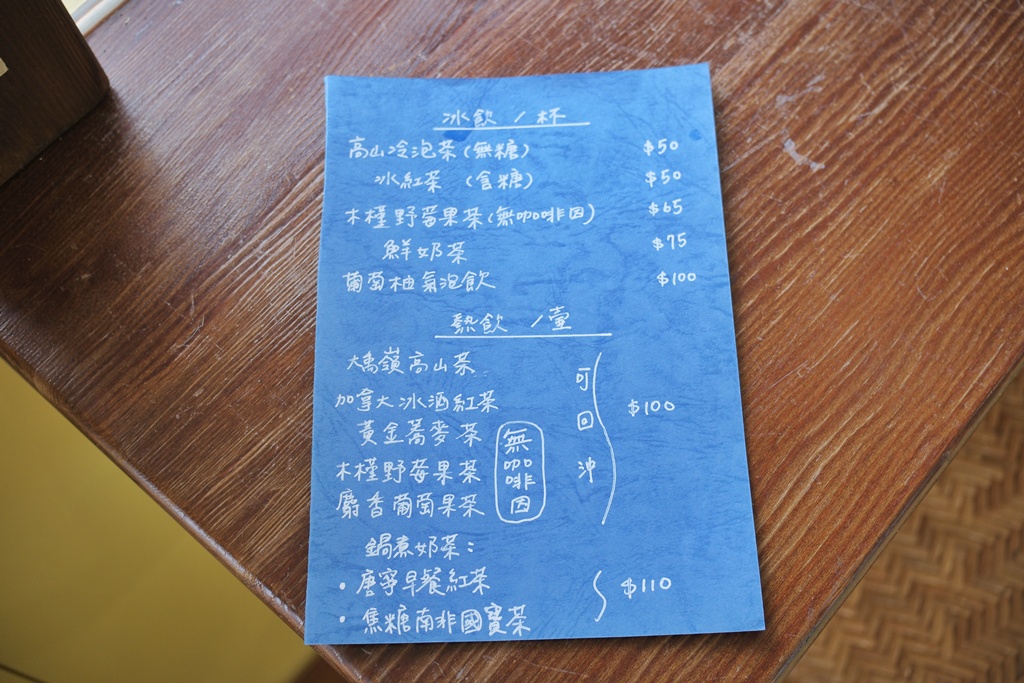 冰飲 / 杯
高山冷泡茶(無糖) $50
冰紅茶 (含糖) $50
木槿野莓果茶(無咖啡因) $65
鮮奶茶 $75
葡萄柚氣泡飲 $100
熱飲 / 壺
大禹嶺高山茶
加拿大冰酒紅茶
黃金蕎麥茶
木槿野莓果茶
麝香葡萄果茶
無咖啡因
可回沖
$100
鍋煮奶茶:
• 唐寧早餐紅茶
• 焦糖南非國寶茶
$110